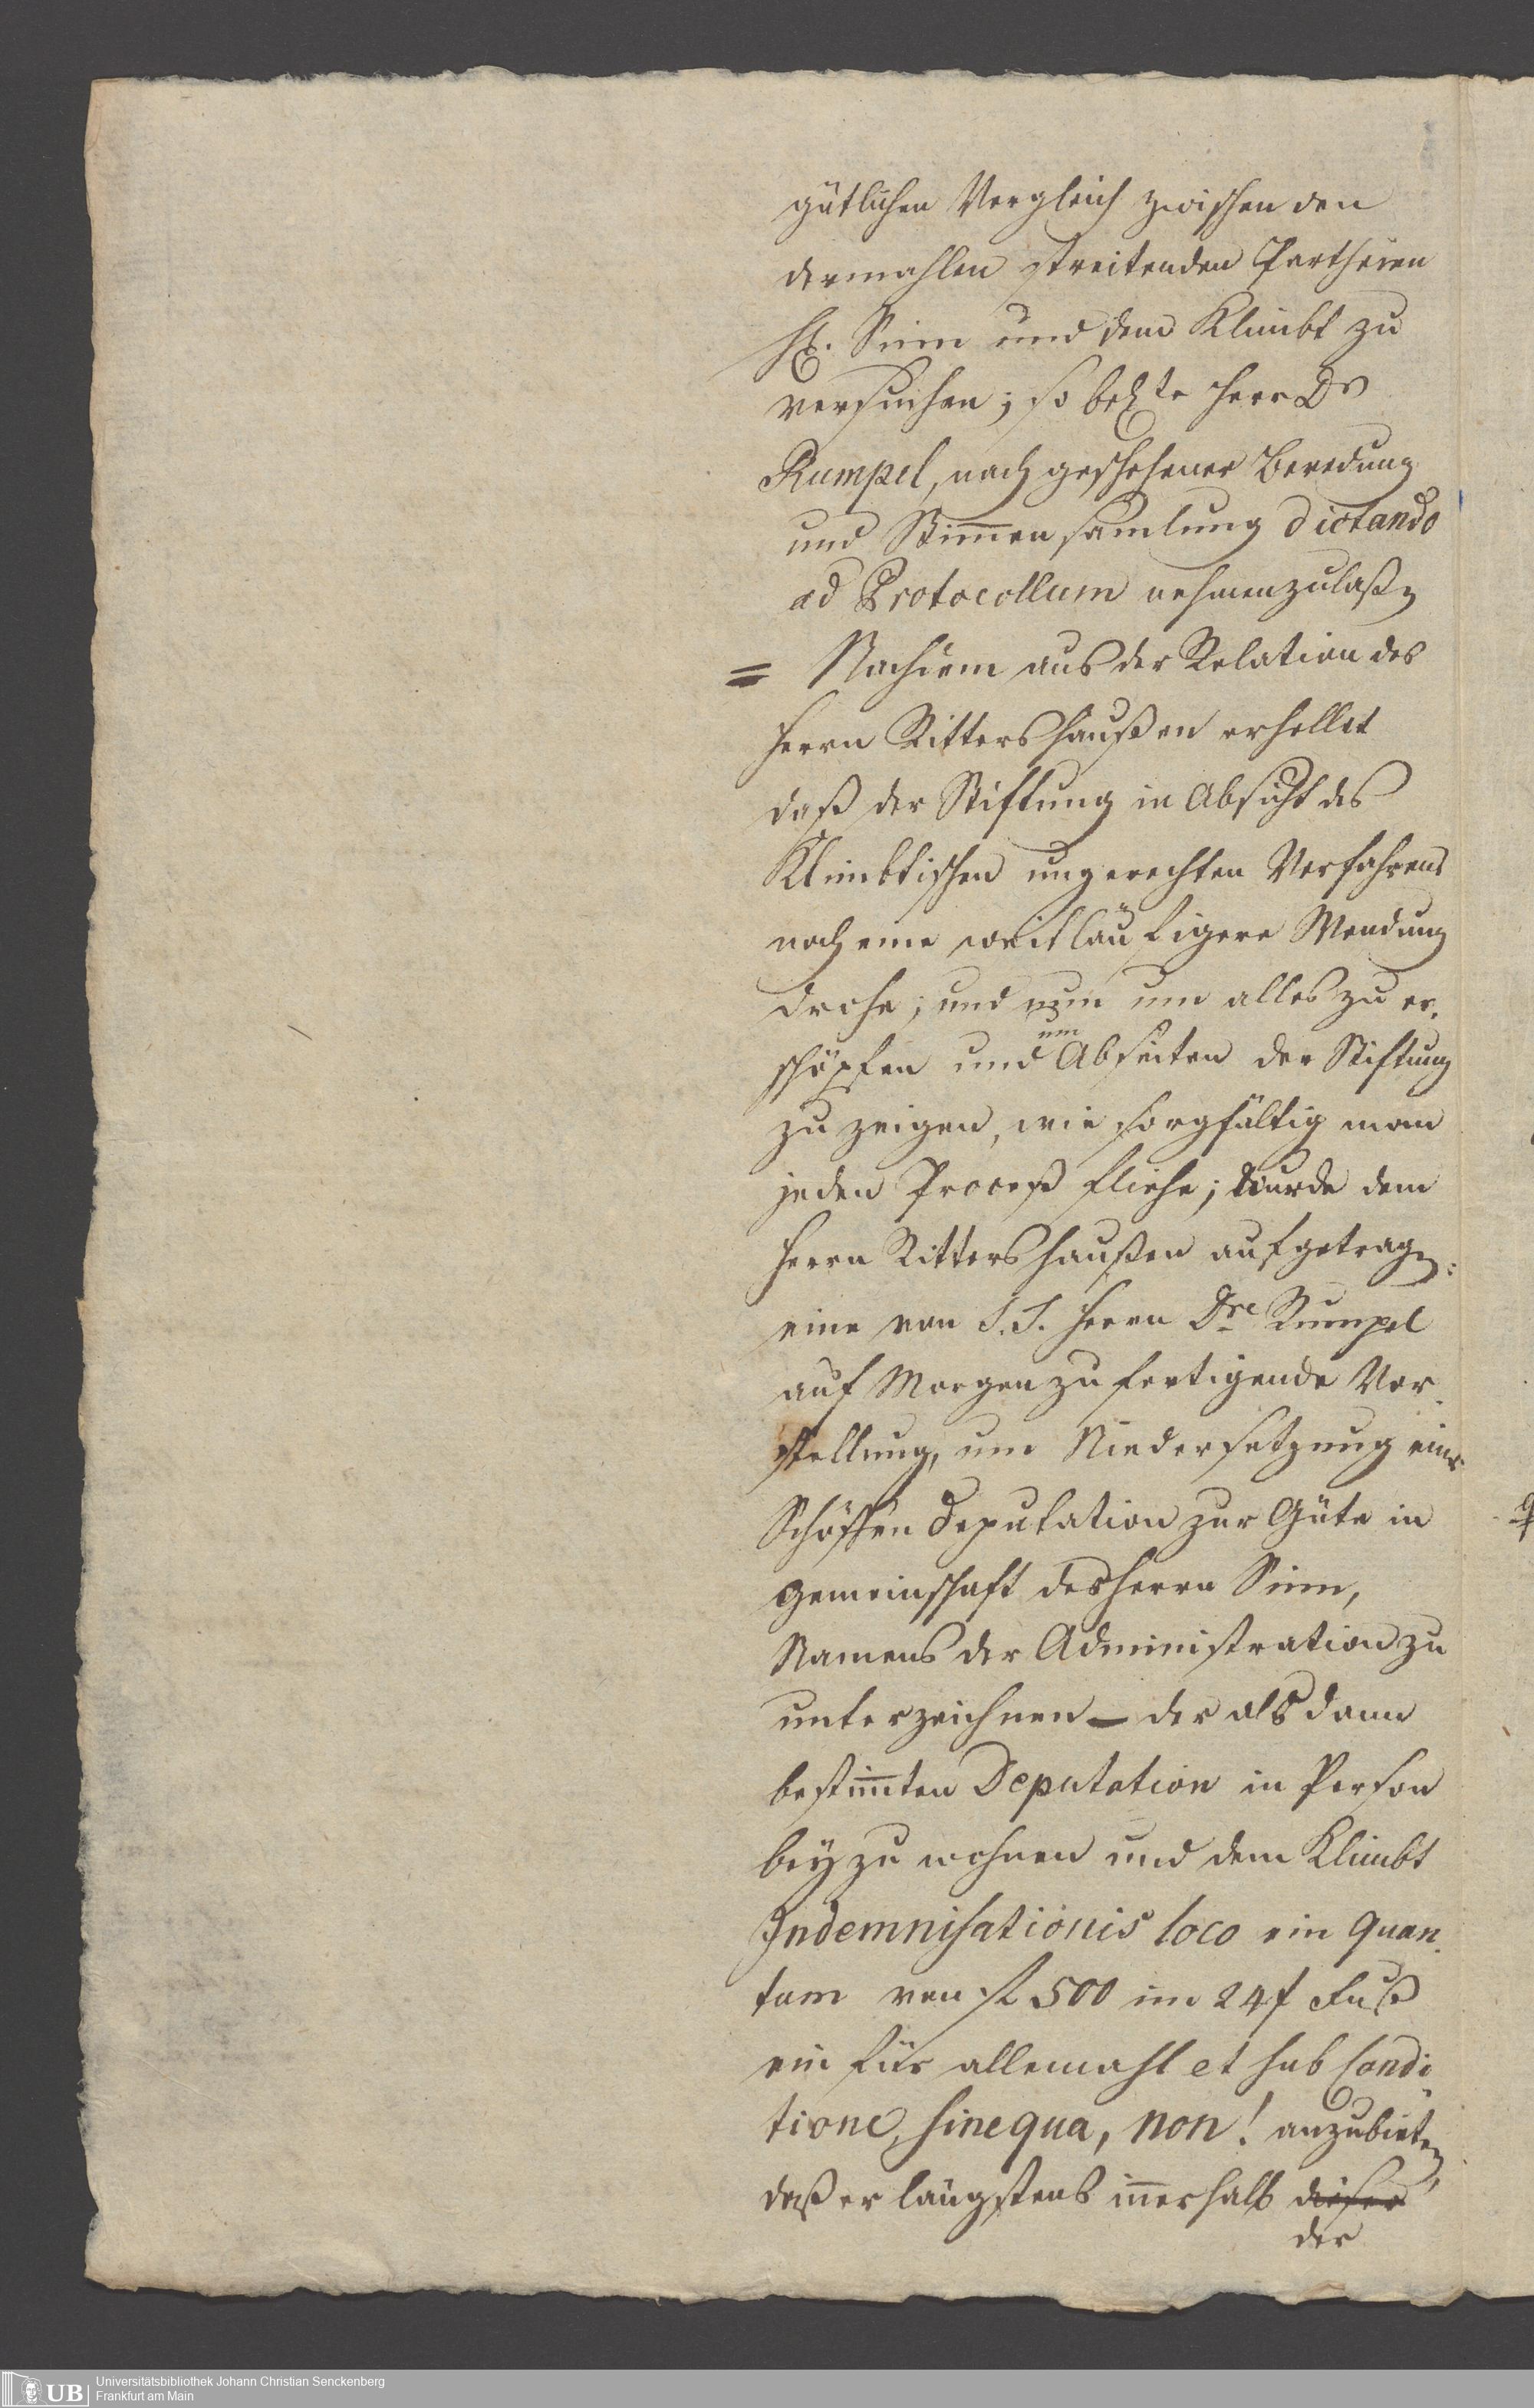 gütlichen Vergleich zwischen den
dermahlen streitenden Partheien
H. Sinn und dem Klimbt zu
versuchen; so bel.te Herr Dr
Rumpel, nach geschehener Beredung
und Stim̅en samlung dictando
ad Protocollum nehmen zu laßen
= Nachdem aus der Relation des
Herrn Rittershaußen erhellet
daß der Stiftung in Absicht des
Klimbtischen ungerechten Verfahrens
noch eine weitläufigere Wendung
drohe; und nun um alles zu er-
schöpfen und um Abseiten der Stiftung
zu zeigen, wie sorgfältig man
jeden Proceß fliehe; wurde dem
Herrn Rittershaußen aufgetragen:
eine von S. T. Herrn Dre Rumpel
auf Morgen zu fertigende Vor-
stellung, um Niedersetzung einer
Schöffen Deputation zur Güte in
Gemeinschaft des Herrn Sinn,
Namens der Administration zu
unterzeichnen – der als dann
bestim̅ten Deputation in Person
bey zu wohnen und dem Klimbt
Indemnisationis loco ein Quan-
tum von fl 500 im 24 f Fuß
ein für allemahl et sub Condi-
tione, sine qua, non! anzubieten,
daß er längstens in̅erhalb dieser
der
Universitätsbibliothek Johann Christian Senckenberg
Frankfurt am Main
UB